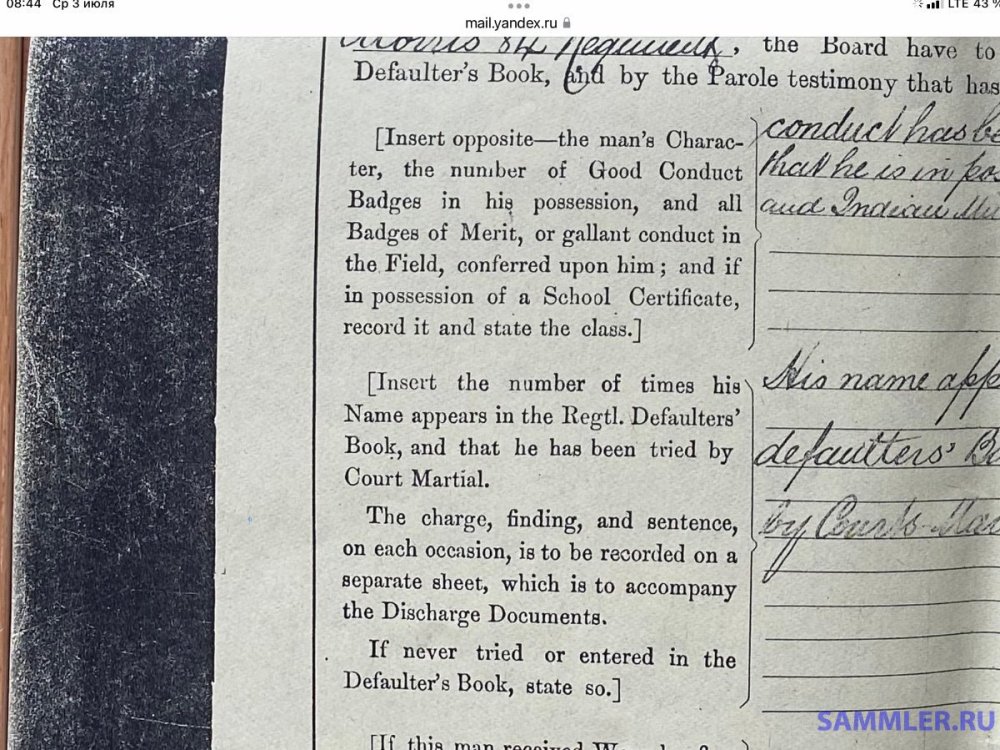 08:44 Ср 3 июля
LTE 43 %
mail.yandex.ru
Morris 84 Regiment, the Board have to
Defaulter's Book, and by the Parole testimony that has
[Insert opposite—the man's Charac-
ter, the number of Good Conduct
Badges in his possession, and all
Badges of Merit, or gallant conduct in
the Field, conferred upon him; and if
in possession of a School Certificate,
record it and state the class.]
conduct has be
that he is in pos
and Indian Mu
[Insert the number of times his
Name appears in the Regtl. Defaulters'
Book, and that he has been tried by
Court Martial.
The charge, finding, and sentence,
on each occasion, is to be recorded on a
separate sheet, which is to accompany
the Discharge Documents.
If never tried or entered in the
Defaulter's Book, state so.]
His name app
defaulters' Bo
by Courts-Mar
[If this man received
SAMMLER.RU